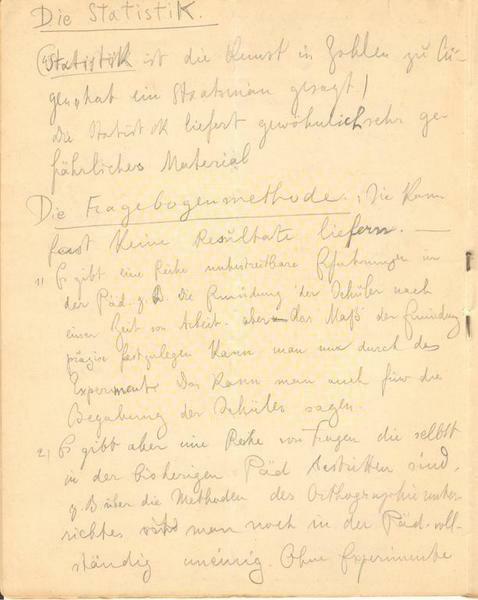 Die Statistik.
(„Statistik ist die Kunst in Zahlen zu Lü-
gen“ hat ein Staatsman gesagt)
Die Statistik liefert gewöhnlich sehr ge-
fährliches Material
Die Fragebogenmethode. Die kann
fast keine Resultate liefern. —
1) Es gibt eine Reihe unbestreitbare Erfahrungen in
der Päd. z.B. die Ermüdung der Schüler nach
einer Zeit von Arbeit. aber das Maß der Ermüdung
präzise festzulegen kann man nur durch das
Experiment. Das kann man auch für die
Begabung der Schüler sagen.
2) Es gibt aber eine Reihe von Fragen die selbst
in der bisherigen Päd bestritten sind,
z.B über die Methoden des Orthographieunter-
richtes man noch in der Päd. voll-
ständig uneinig. Ohne Experimente